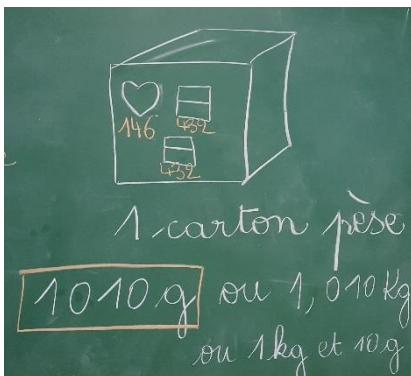 146 432
432
1 carton pèse
1010 g ou 1,010 Kg
ou 1 kg et 10 g